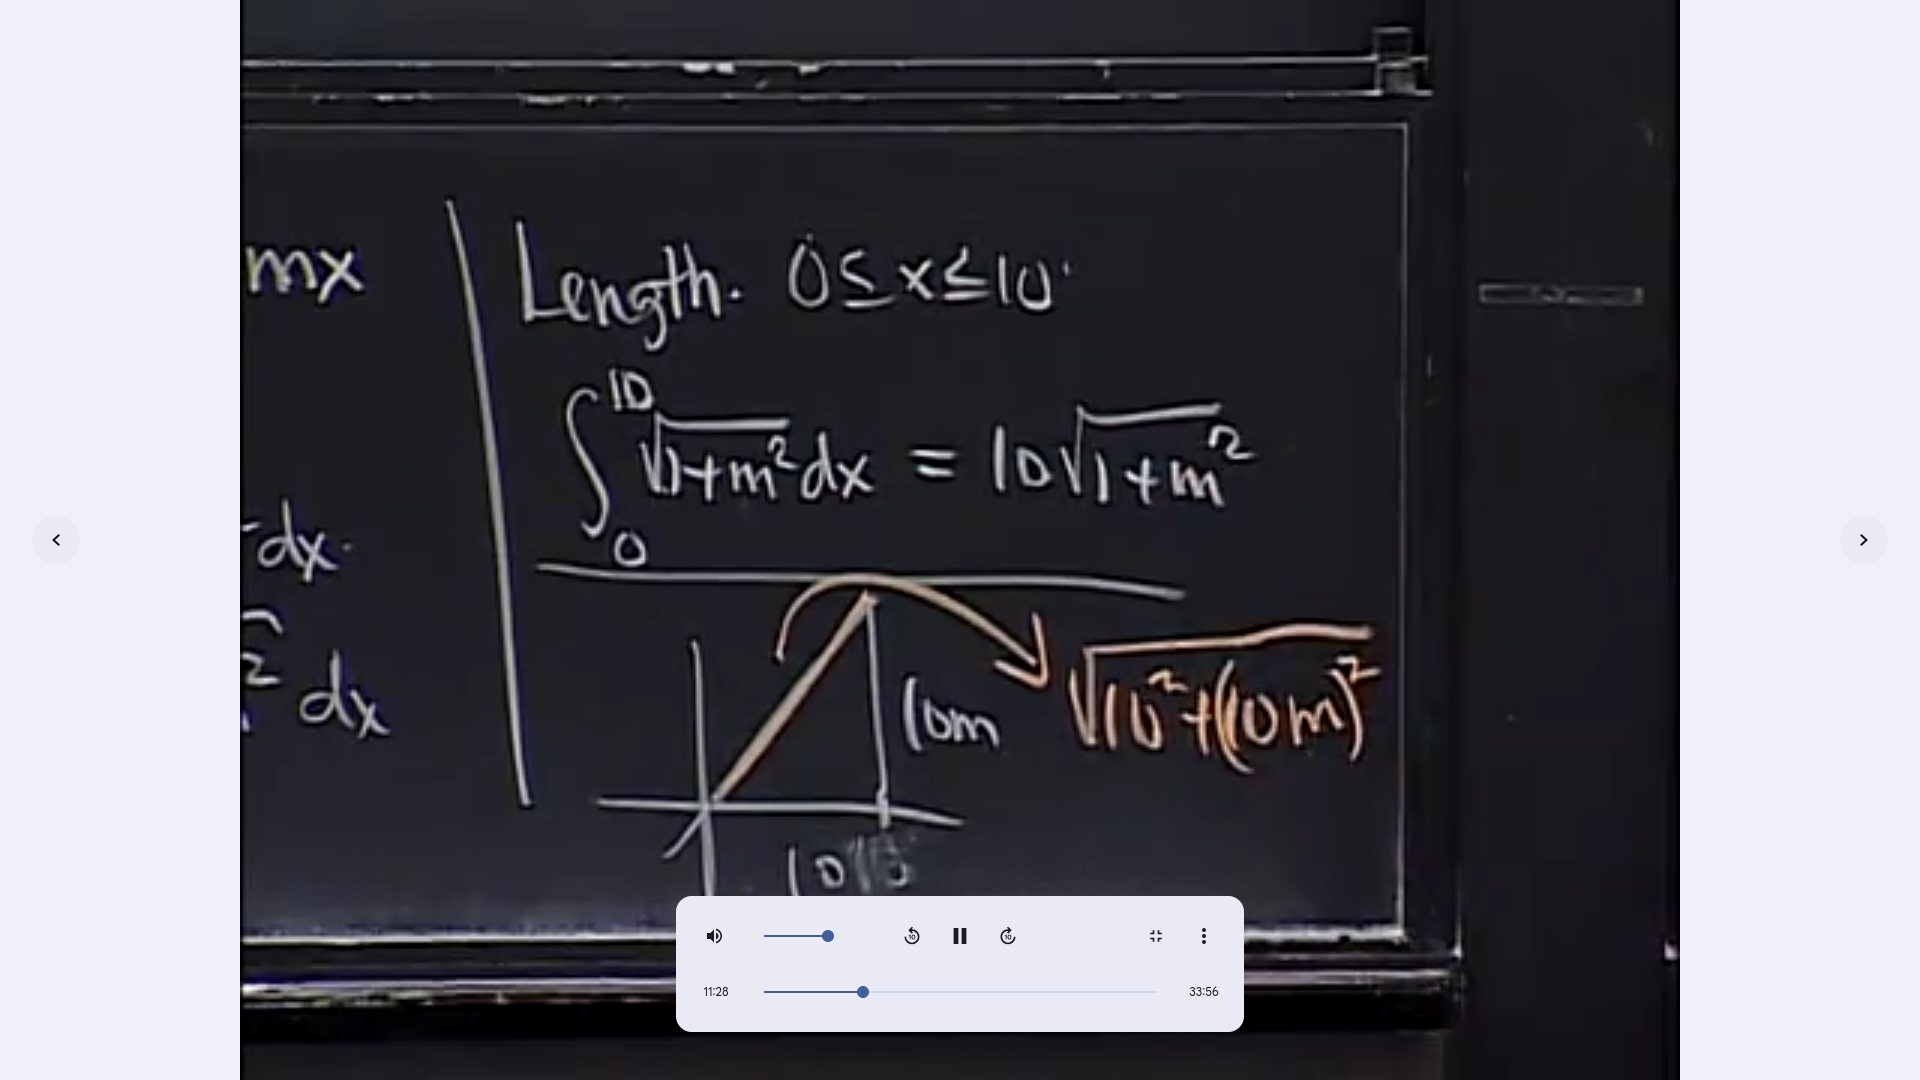 mx
dx.
2 dx
Length. 0≤x≤10
∫₀¹⁰ √1+m² dx = 10√1+m²
10m
√10²+(10m)²
10
11:28
33:56